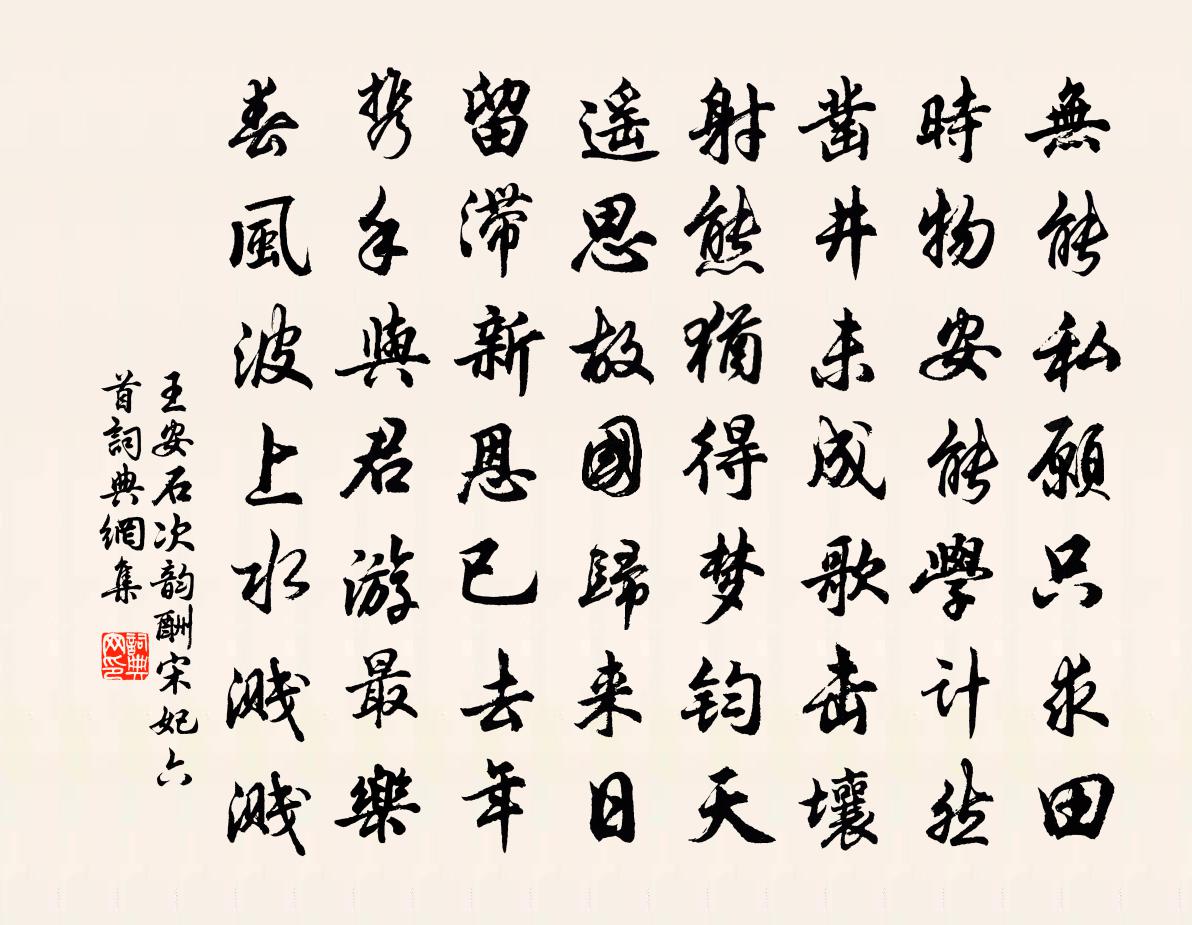 無能私願只求田
時物安能學計然
鑿井未成歌击壤
射熊猶得梦钧天
遥思故國歸来日
留滞新恩已去年
携手與君游最樂
春風波上水溅溅
王安石次韵酬宋妃六
首詞典網集
詞典
网印